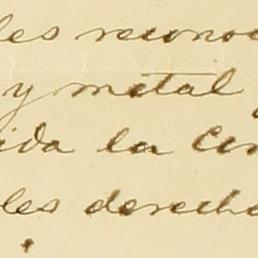 les recono
y metal
ida la Com
les derecho